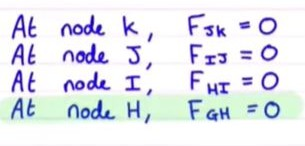 At node k, FJk = 0
At node J, FIJ = 0
At node I, FHI = 0
At node H, FGH = 0